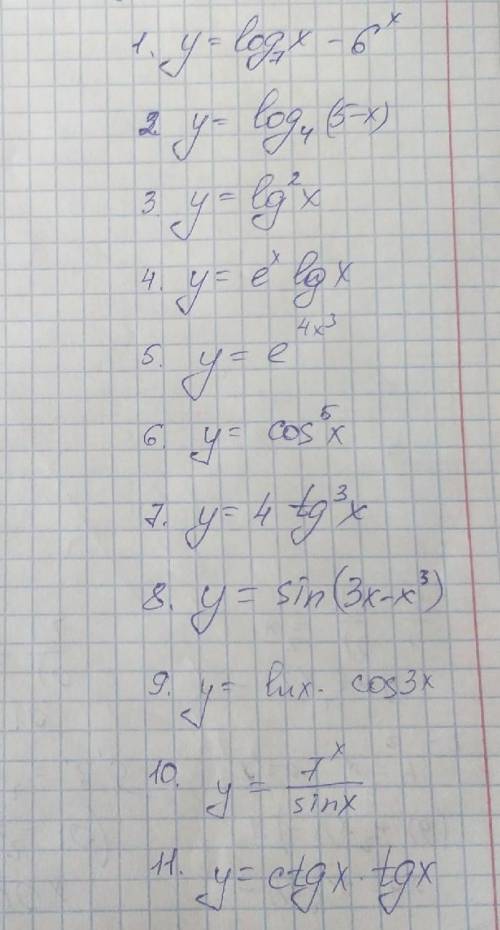 1. y = log₇x - 6ˣ
2 y = log₄(5-x)
3. y = lg²x
4. y = eˣ lgx
5. y = e^4x³
6. y = cos⁵x
7. y = 4 tg³x
8. y = sin(3x-x³)
9. y = lnx · cos3x
10. y = 7ˣ/sinx
11. y = ctgx · tgx